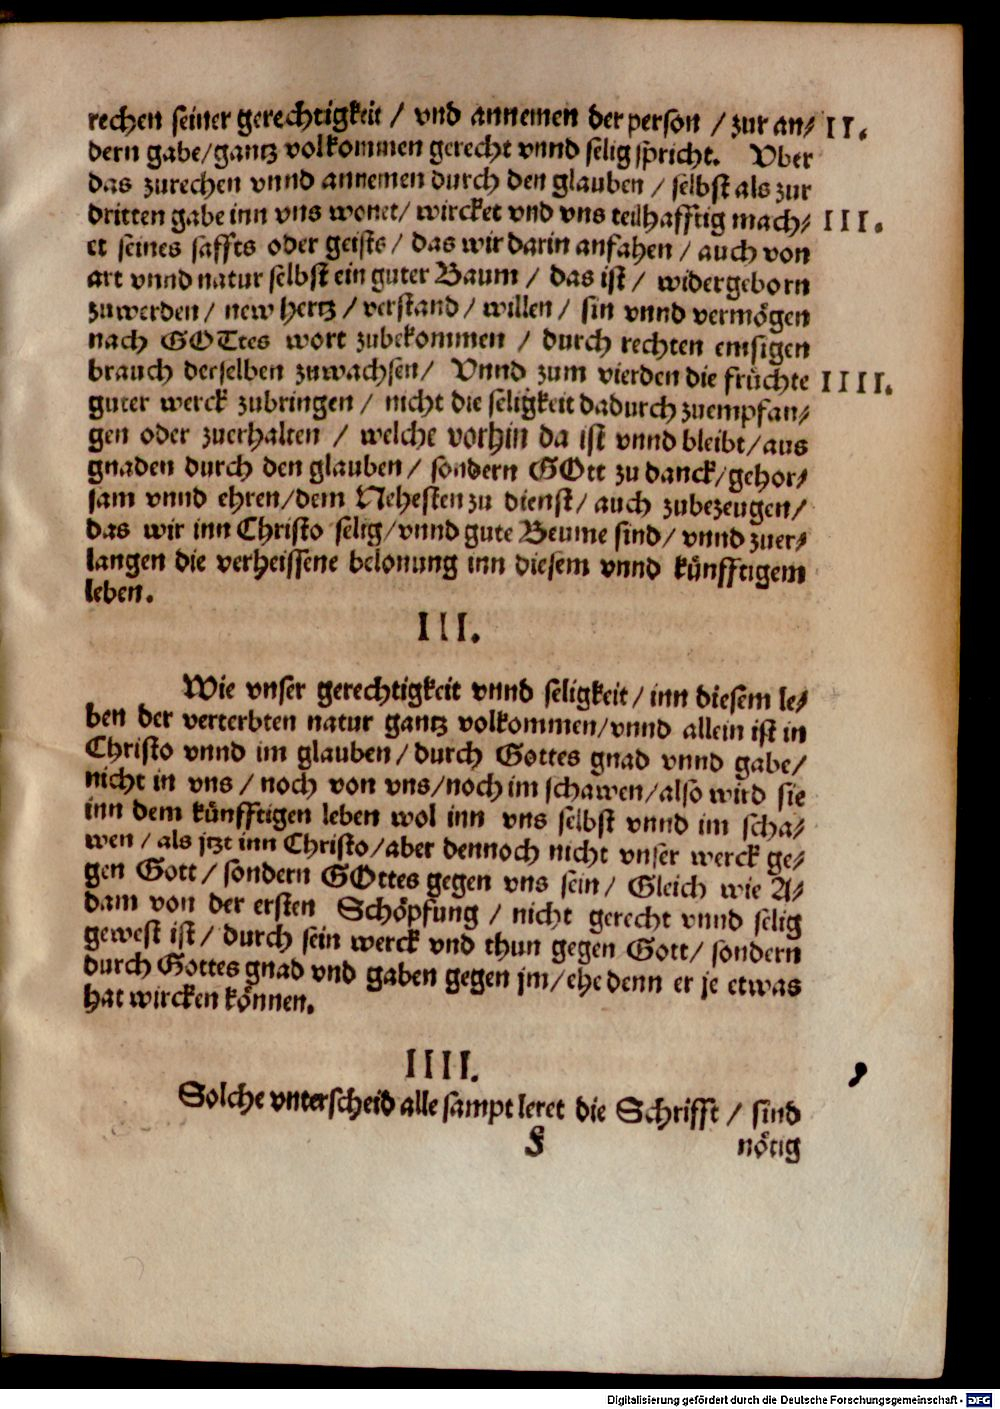 rechen seiner gerechtigkeit / vnd annemen der person / zur an⸗ II.
dern gabe/gantz volkommen gerecht vnnd selig spricht. Vber
das zurechen vnnd annemen durch den glauben / selbst als zur
dritten gabe inn vns wonet/ wircket vnd vns teilhafftig mach⸗ III.
et seines saffts oder geists/ das wir darin anfahen / auch von
art vnnd natur selbst ein guter Baum / das ist / widergeborn
zuwerden / new hertz / verstand / willen / sin vnnd vermögen
nach GOTtes wort zubekommen / durch rechten emsigen
brauch derselben zuwachsen/ Vnnd zum vierden die früchte IIII.
guter werck zubringen / nicht die seligkeit dadurch zuempfan⸗
gen oder zuerhalten / welche vorhin da ist vnnd bleibt/aus
gnaden durch den glauben / sondern GOtt zu danck/gehor⸗
sam vnnd ehren/dem Nehesten zu dienst/ auch zubezeugen/
das wir inn Christo selig/vnnd gute Beume sind/ vnnd zuer⸗
langen die verheissene belonung inn diesem vnnd künfftigem
leben.
III.
Wie vnser gerechtigkeit vnnd seligkeit/inn diesem le⸗
ben der verterbten natur gantz volkommen/vnnd allein ist in
Christo vnnd im glauben/durch Gottes gnad vnnd gabe/
nicht in vns / noch von vns/noch im schawen/also wird sie
inn dem künfftigen leben wol inn vns selbst vnnd im scha⸗
wen / als jtzt inn Christo/aber dennoch nicht vnser werck ge⸗
gen Gott / sondern GOttes gegen vns sein/ Gleich wie A⸗
dam von der ersten Schöpfung / nicht gerecht vnnd selig
gewest ist / durch sein werck vnd thun gegen Gott/ sondern
durch Gottes gnad vnd gaben gegen jm/ehe denn er je etwas
hat wircken können.
IIII.
Solche vnterscheid alle sampt leret die Schrifft / sind
nötig
Digitalisierung gefördert durch die Deutsche Forschungsgemeinschaft - DFG